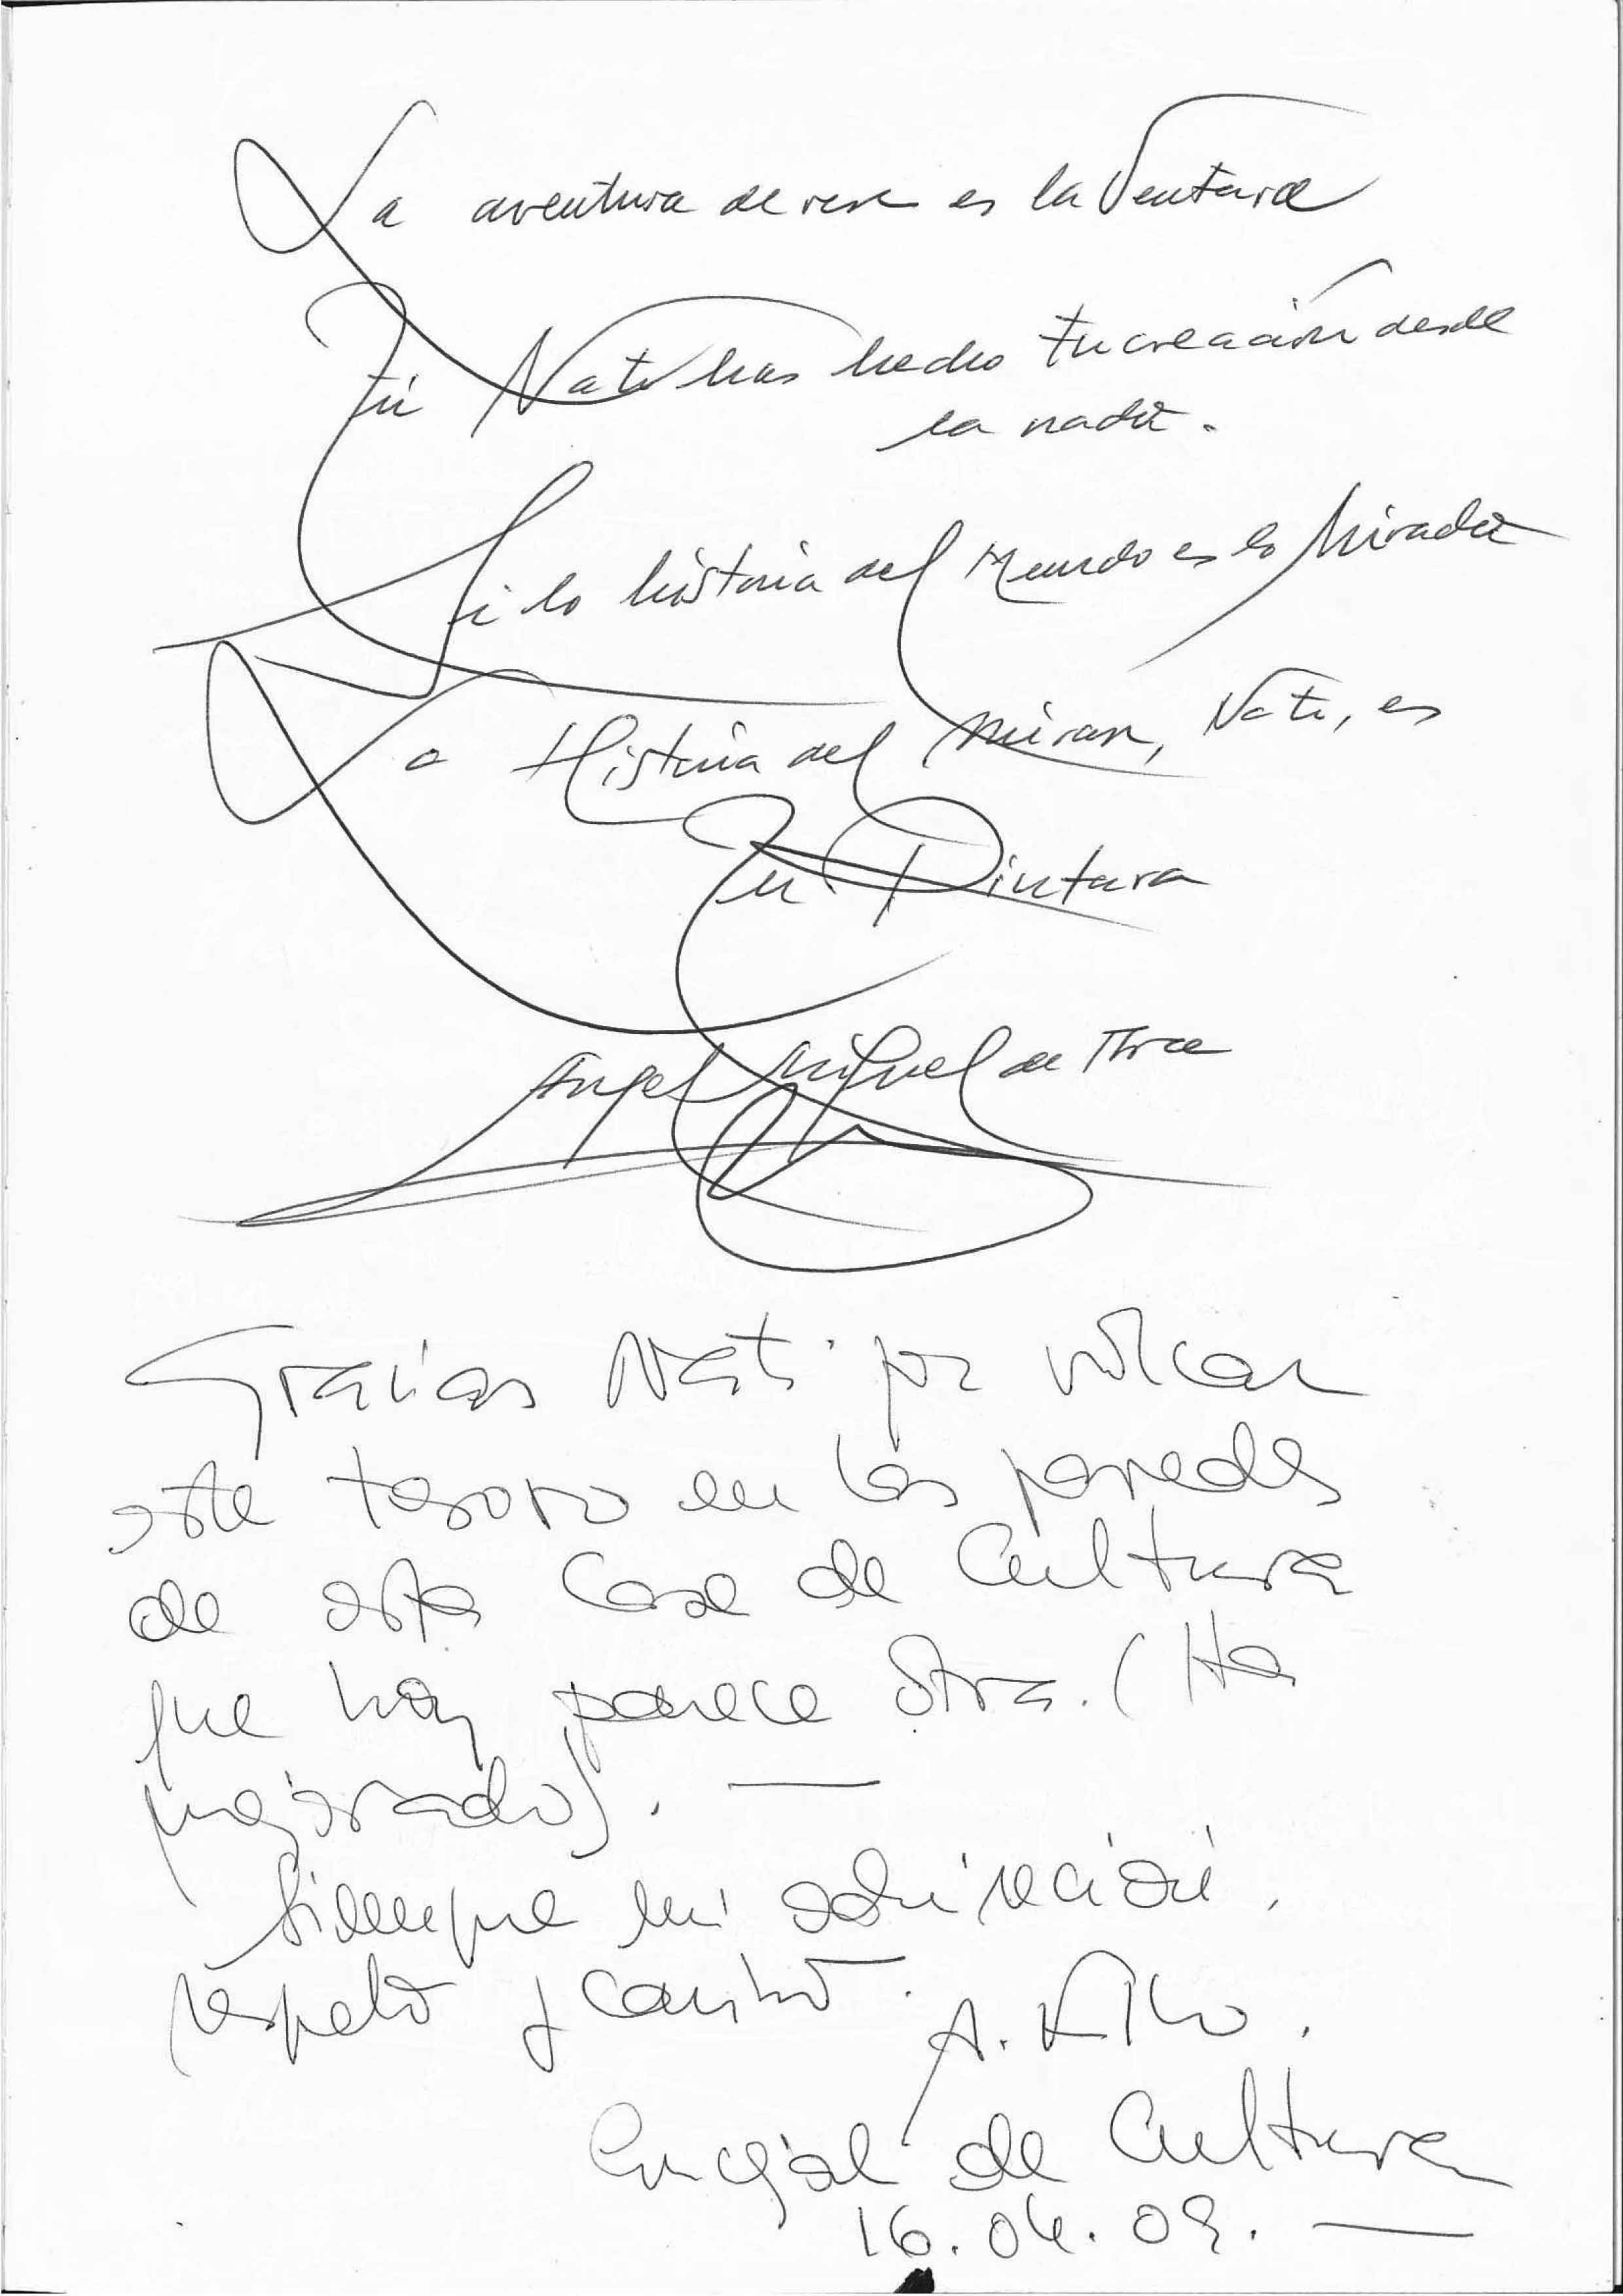 La aventura de ver es la Ventura
Tú Nati has hecho tu creación desde
la nada.
Si la historia del Mundo es la Mirada
La Historia del Mirar, Nati, es
Tu Pintura
Angel Miguel de
Gracias Nati por volcar
este tesoro en las paredes
de esta Casa de Cultura
que hoy parece otra. (Ha
mejorado).
Siempre mi admiración,
respeto y cariño.
A.
Concejal de Cultura
16.04.09.